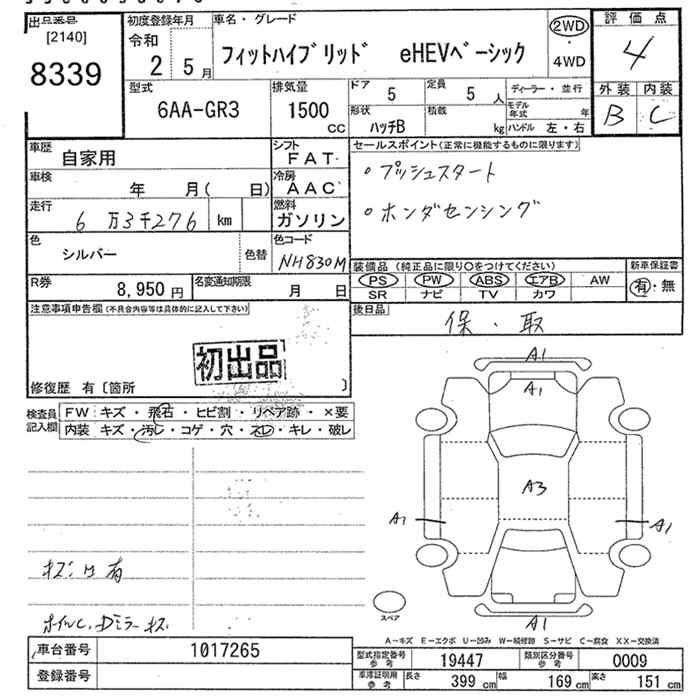 出品番号
[2140]
8339
初度登録年月
令和
2 5月
車名・グレード
フィットハイブリッド eHEVベーシック
2WD
・
4WD
評価点
4
外装 内装
B C
型式
6AA-GR3
排気量
1500
CC
ドア 5
定員 5 人
形状 ハッチB
積載 kg
ディーラー・並行
モデル年式 年
ハンドル 左・右
車歴 自家用
シフト FAT
車検 年 月( 日)
冷房 AAC
走行 6万3千276 km
燃料 ガソリン
色 シルバー
色替
色コード NH830M
R券 8,950 円
名変通知期限 月 日
セールスポイント(正常に機能するものに限ります)
・プッシュスタート
・ホンダセンシング
装備品 (純正品に限り○をつけてください)
PS PW ABS エアB AW
SR ナビ TV カワ
新車保証書
有・無
後日品
保・取
注意事項申告欄(不具合内容等は具体的に記入して下さい)
初出品
修復歴 有〔箇所 〕
検査員記入欄
FW キズ・飛石・ヒビ割・リペア跡・×要
内装 キズ・汚レ・コゲ・穴・スレ・キレ・破レ
有
キズ
A1
A1
A3
A1
A1
A1
スペア
A-キズ E-エクボ U-凹み W-補修跡 S-サビ C-腐食 XX-交換済
車台番号 1017265
登録番号
型式指定番号 参考 19447
類別区分番号 参考 0009
車庫証明用 参考 長さ 399 cm 幅 169 cm 高さ 151 cm